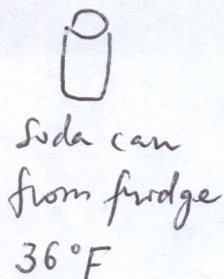 Soda can
from fridge
36°F